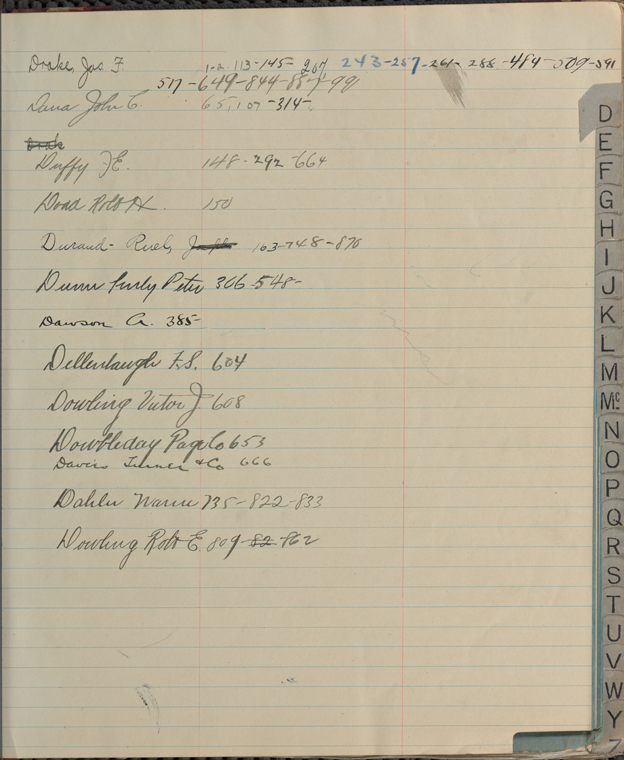 Drake, Jas. F. 1-2 113-145- 207, 243-257-261-288-484-509-591
517-649-844-887-991
Dana John C. 65,107-314-
Drak
Duffy J E. 148-292-664
Dodd Robt H. 150
Durand-Ruel, Joseph 163-748-870
Dunne Finly Peter 306-548-
Dawson A. 385-
Dellenbaugh F.S. 604
Dowling Victor J. 608
Dowbleday Page Co 653
Davies Turner & Co 666
Dahler Warren 735-822-833
Dowling Robt E. 809-82-862
D
E
F
G
H
I
J
K
L
M
Mc
N
O
P
Q
R
S
T
U
V
W
Y
Z